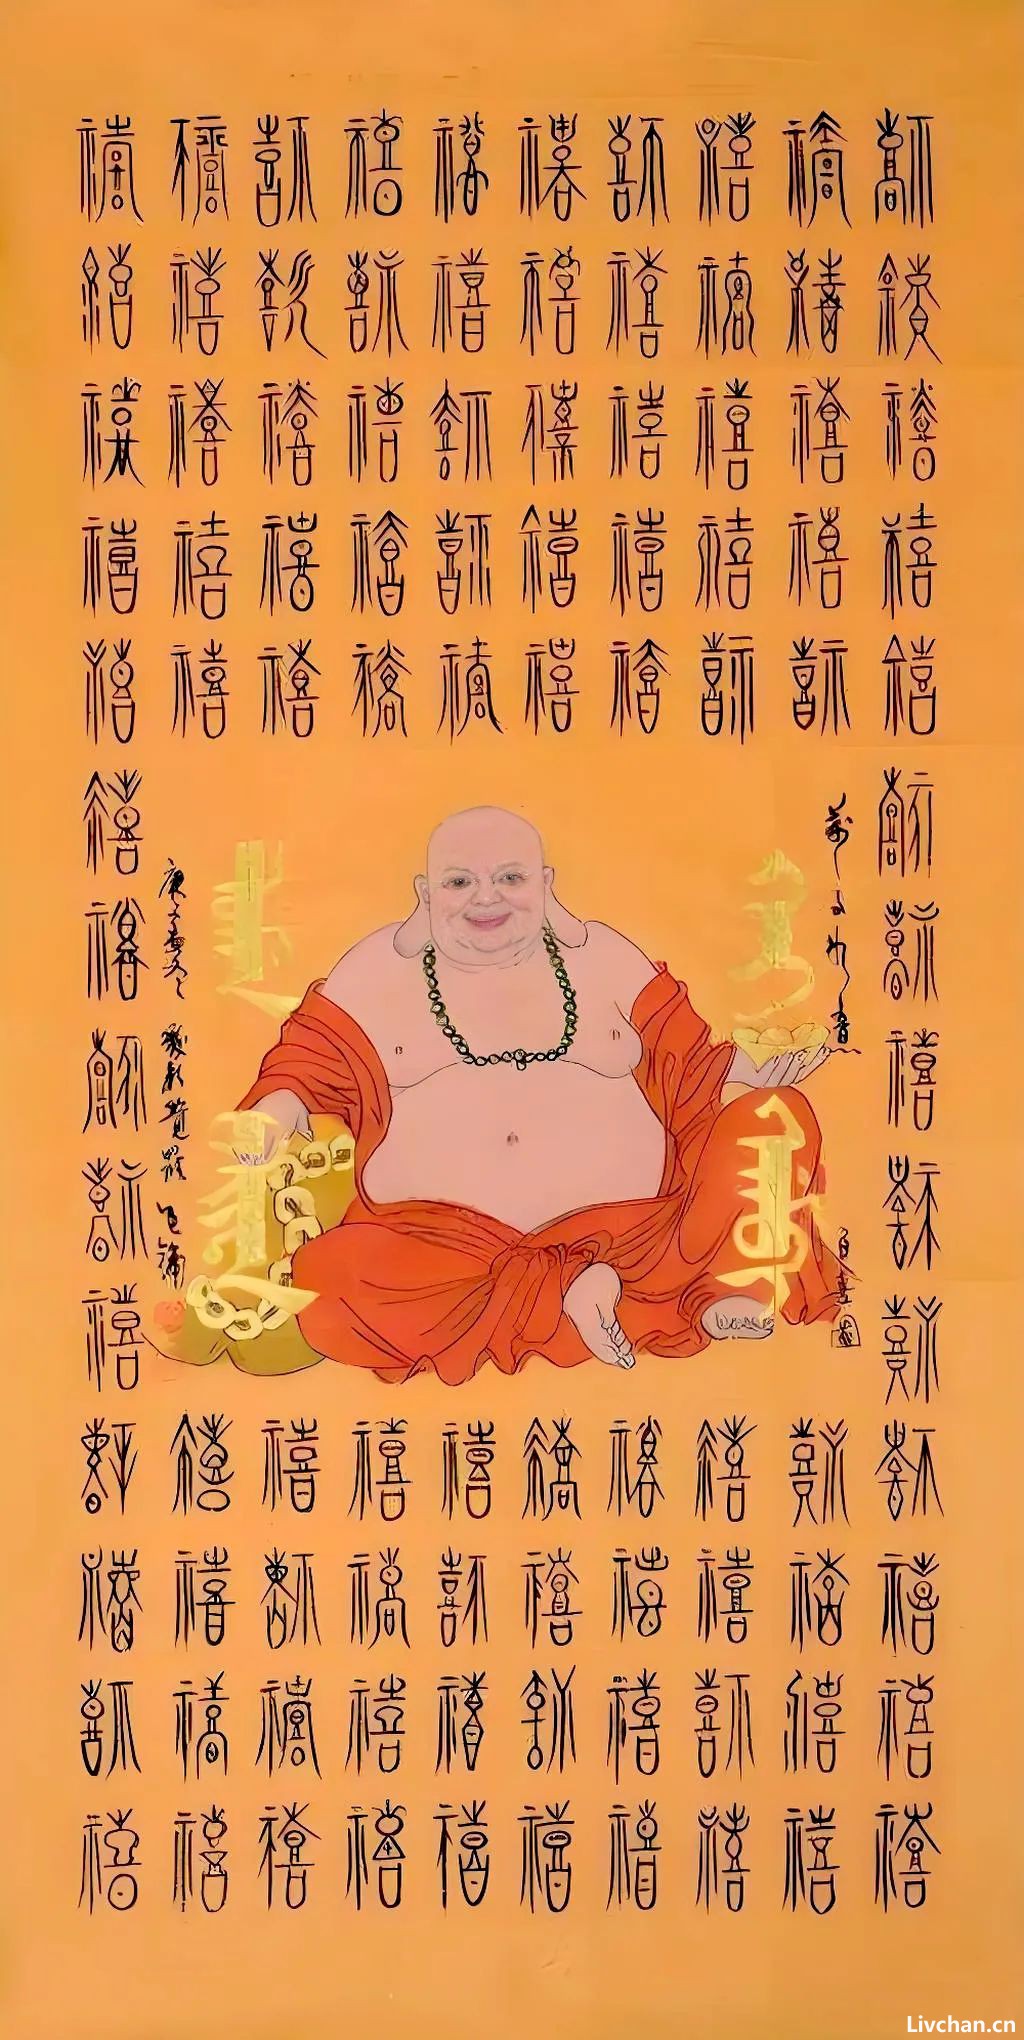 禧禧禧禧禧禧禧禧禧禧
禧禧禧禧禧禧禧禧禧禧
禧禧禧禧禧禧禧禧禧禧
禧禧禧禧禧禧禧禧禧禧
禧禧禧禧禧禧禧禧禧禧
禧禧
禧禧
禧禧
禧禧
禧禧
萬事如意
庚子 愛新覺羅
禧禧禧禧禧禧禧禧禧禧
禧禧禧禧禧禧禧禧禧禧
禧禧禧禧禧禧禧禧禧禧
禧禧禧禧禧禧禧禧禧禧
Livchan.cn